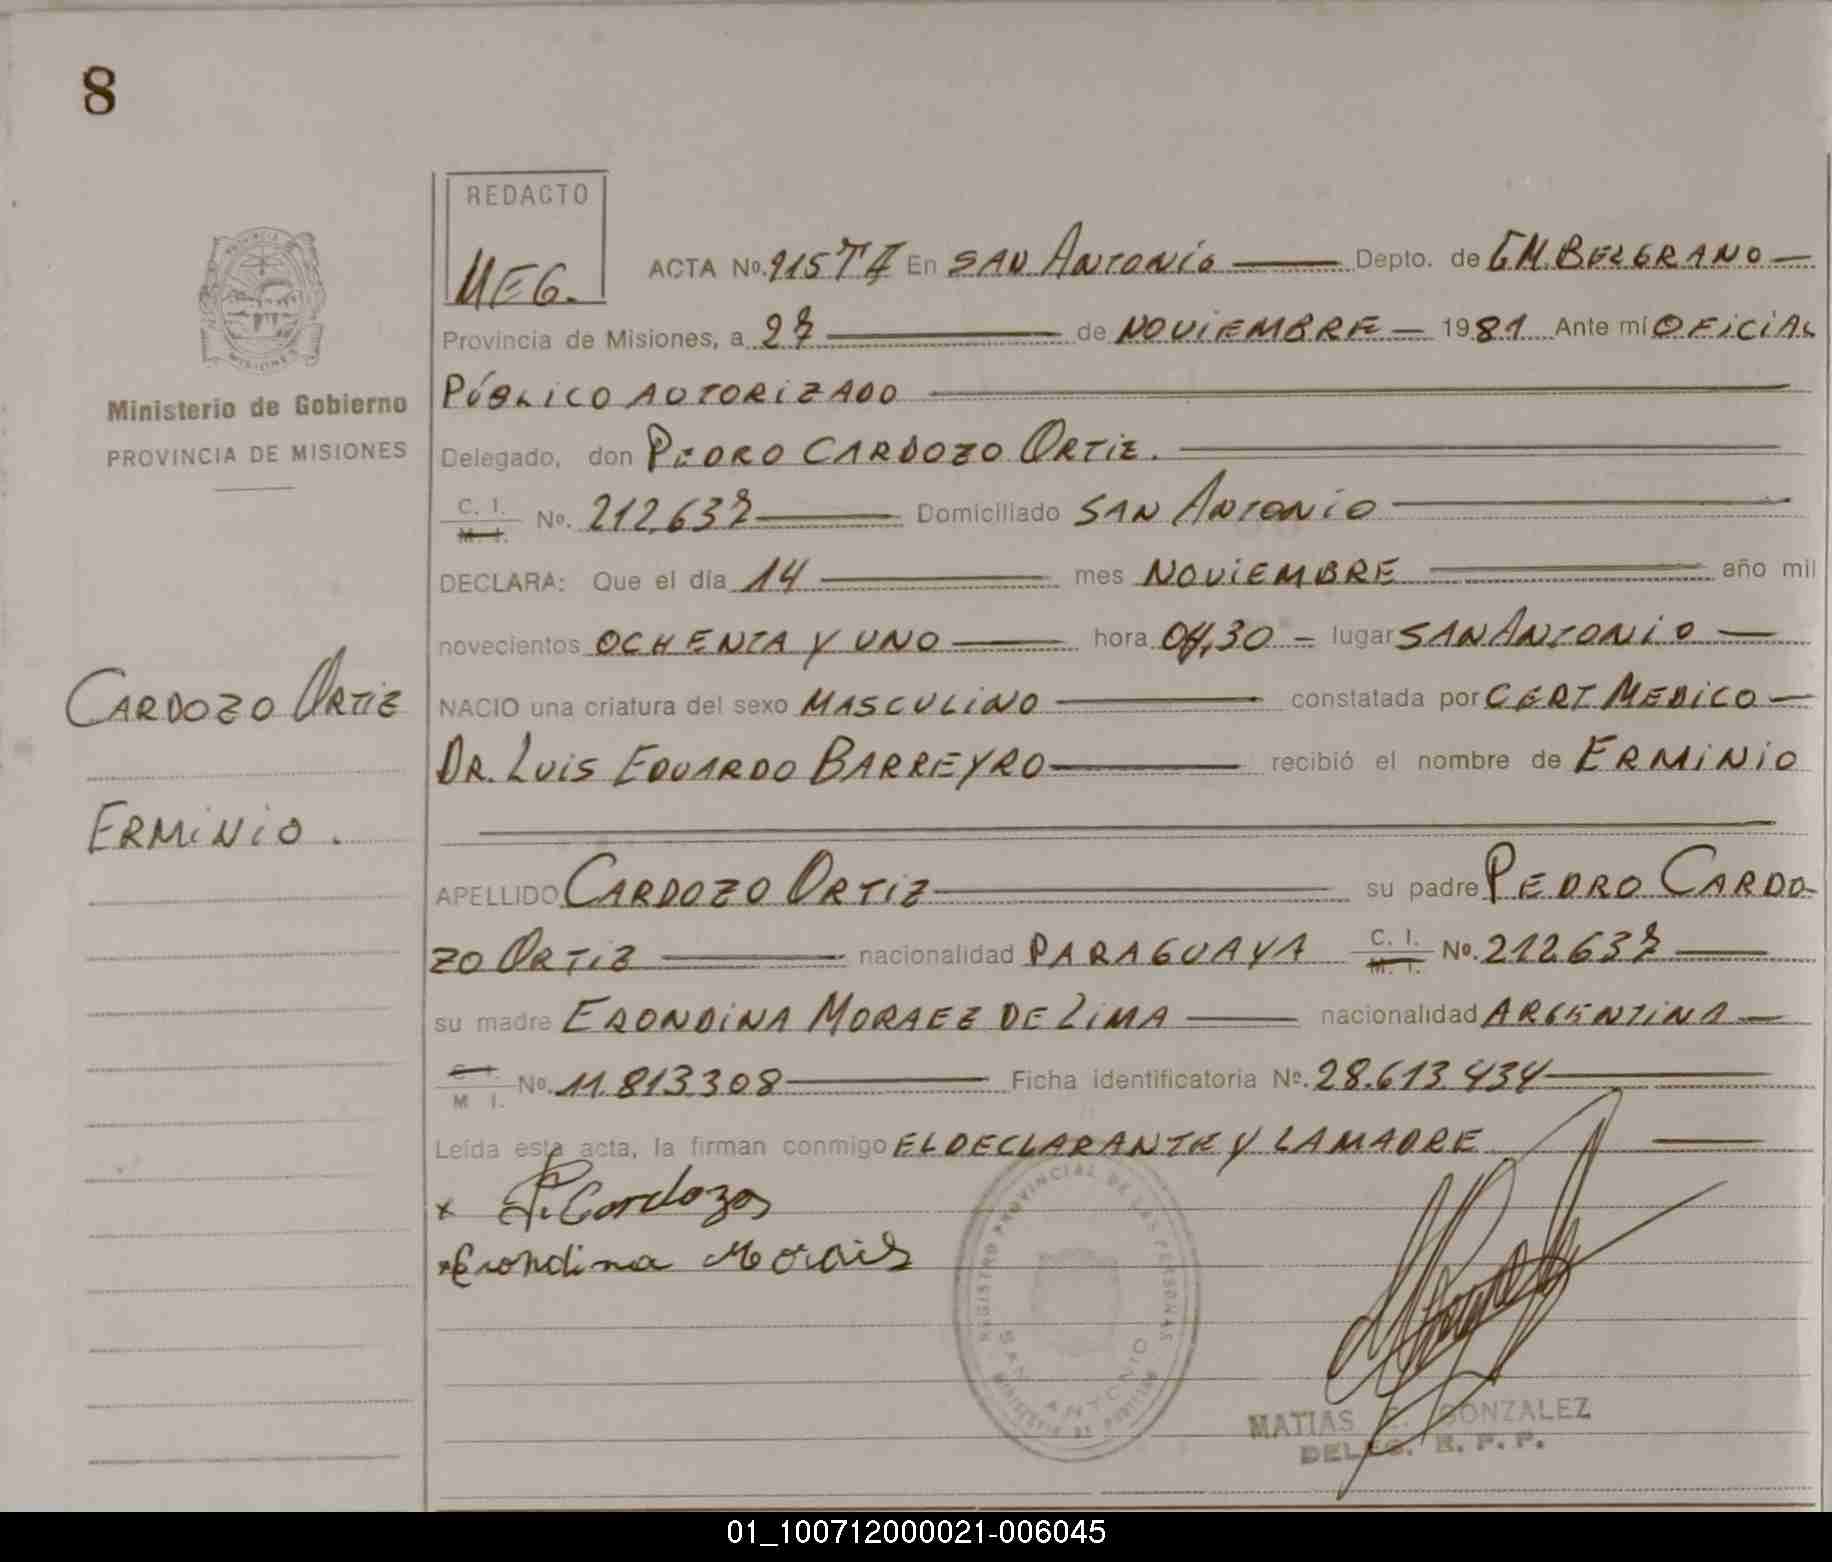 8
REDACTO
MEG.
ACTA No. 115 TI En SAN ANTONIO Depto. de GM. BELGRANO
Provincia de Misiones, a 27 de NOVIEMBRE 1981 Ante mí OFICIAL
PÚBLICO AUTORIZADO
Ministerio de Gobierno
PROVINCIA DE MISIONES
Delegado, don PEDRO CARDOZO ORTIZ.
C. I.
M. I. No. 212.637 Domiciliado SAN ANTONIO
DECLARA: Que el día 14 mes NOVIEMBRE año mil
novecientos OCHENTA Y UNO hora 04,30 lugar SAN ANTONIO
CARDOZO ORTIZ
ERMINIO.
NACIO una criatura del sexo MASCULINO constatada por CERT MEDICO
DR. LUIS EDUARDO BARREYRO recibió el nombre de ERMINIO
APELLIDO CARDOZO ORTIZ su padre PEDRO CARDO-
ZO ORTIZ nacionalidad PARAGUAYA C. I. M. I. No. 212.637
su madre ERONDINA MORAEZ DE LIMA nacionalidad ARGENTINA
C. I.
M I. No. 11.813.308 Ficha identificatoria No. 28.613.434
Leída esta acta, la firman conmigo EL DECLARANTE Y LA MADRE
x P. Cardozo
x Erondina Morais
REGISTRO PROVINCIAL DE LAS PERSONAS
SAN ANTONIO
MATIAS E. GONZALEZ
DELEG. R. P. P.
01_100712000021-006045